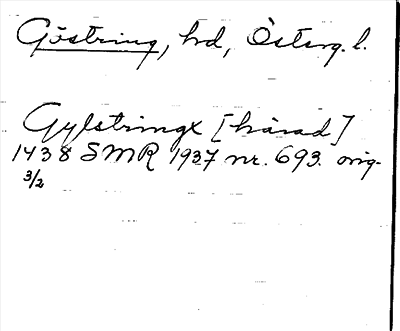 Göstring, hd, Österg. l.
Gylstringx [härad]
1438 SMR 1937 nr. 693. orig.
3/2